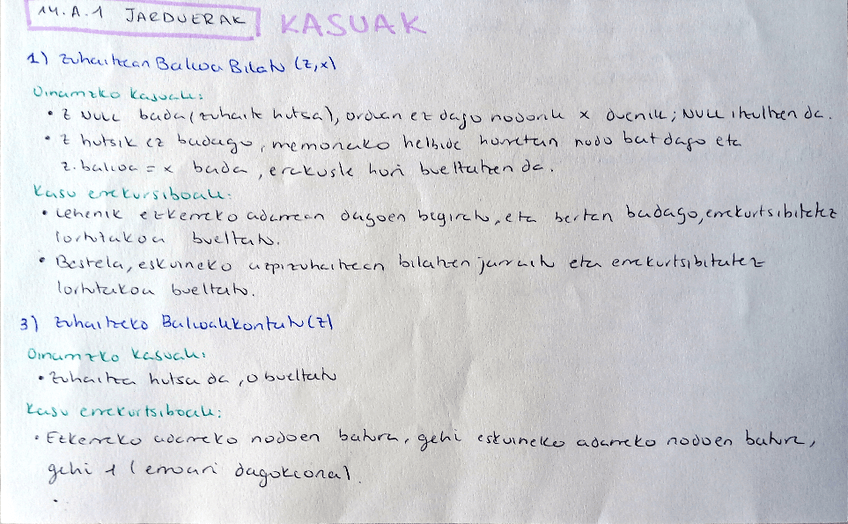 14.A.1 JARDUERAK KASUAK
1) Zuhaitzean Balioa Bilatu (z,x)
Oinarrizko kasuak:
• z NULL bada (zuhaitz hutsa), orduan ez dago nodorik x duenik; NULL itzultzen da.
• z hutsik ez badago, memoriako helbide horretan nodo bat dago eta
z.balioa = x bada, erakusle hori bueltatzen da.
Kasu errekursiboak:
• Lehenik ezkerreko adarrean dagoen begiratu, eta bertan badago, errekurtsibitatez
lortutakoa bueltatu.
• Bestela, eskuineko azpizuhaitzean bilatzen jarraitu eta errekurtsibitatez
lortutakoa bueltatu.
3) Zuhaitzeko Balioak Kontatu (z)
Oinarrizko kasuak:
• Zuhaitza hutsa da, 0 bueltatu
Kasu errekurtsiboak:
• Ezkerreko adarreko nodoen batura, gehi eskuineko adarreko nodoen batura,
gehi 1 (erroari dagokiona).
•